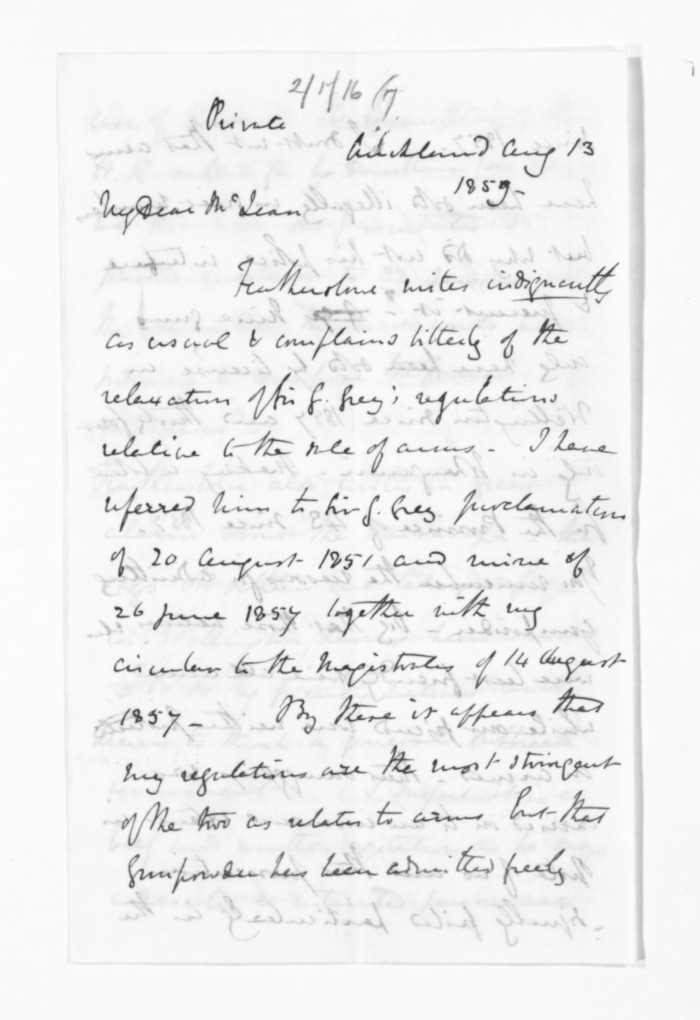 Private
Auckland Aug 13
1859
My Dear McLean
Featherstone writes indignantly
as usual & complains bitterly of the
relaxation of Sir G. Grey's regulations
relative to the sale of arms - I have
referred him to Sir G. Grey proclamation
of 20 August 1851 and mine of
26 June 1857 together with my
circular to the Magistrates of 14 August
1857 - By these it appears that
my regulations are the most stringent
of the two as relates to arms but that
Gunpowder has been admitted freely